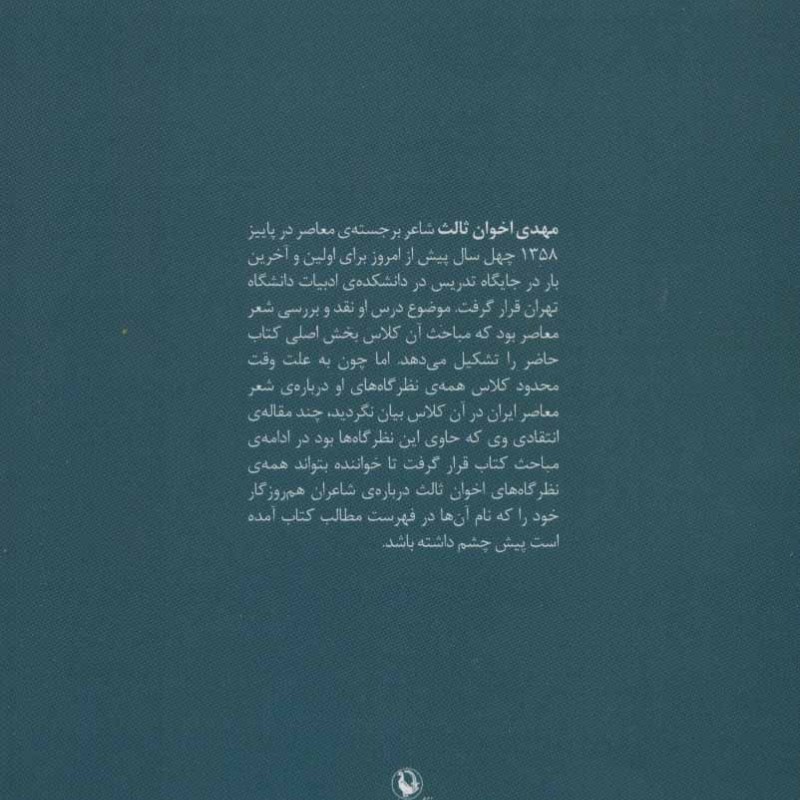 مهدی اخوان ثالث شاعر برجسته‌ی معاصر در پاییز
۱۳۵۸ چهل سال پیش از امروز برای اولین و آخرین
بار در جایگاه تدریس در دانشکده‌ی ادبیات دانشگاه
تهران قرار گرفت. موضوع درس او نقد و بررسی شعر
معاصر بود که مباحث آن کلاس بخش اصلی کتاب
حاضر را تشکیل می‌دهد. اما چون به علت وقت
محدود کلاس همه‌ی نظرگاه‌های او درباره‌ی شعر
معاصر ایران در آن کلاس بیان نگردید، چند مقاله‌ی
انتقادی وی که حاوی این نظرگاه‌ها بود در ادامه‌ی
مباحث کتاب قرار گرفت تا خواننده بتواند همه‌ی
نظرگاه‌های اخوان ثالث درباره‌ی شاعران هم‌روزگار
خود را که نام آن‌ها در فهرست مطالب کتاب آمده
است پیش چشم داشته باشد.